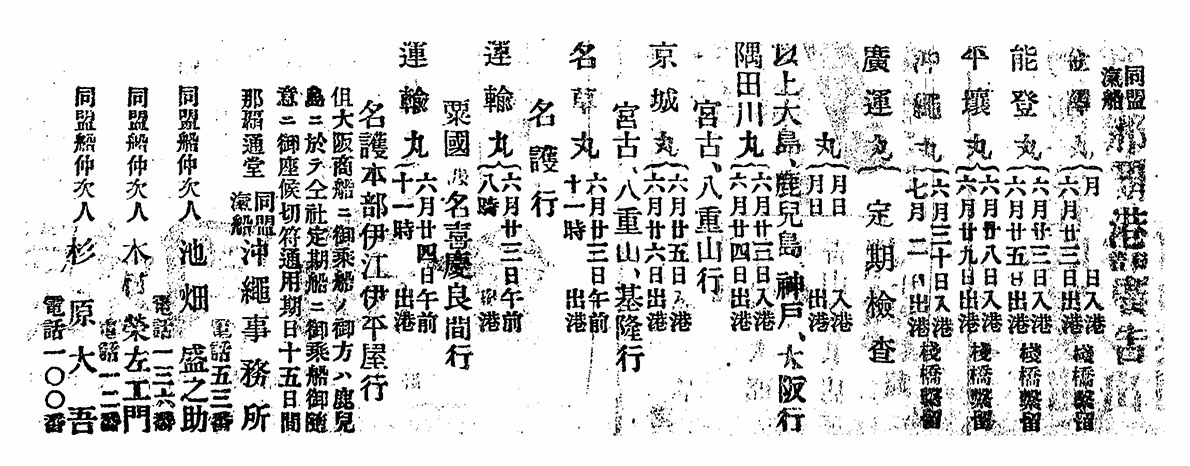 同盟汽船那覇港發着廣告
丸 月 日入港 六月廿三日出港 棧橋繫留
能登丸 六月廿三日入港 六月廿五日出港 棧橋繫留
平壤丸 六月廿八日入港 六月廿九日出港 棧橋繫留
沖繩丸 六月三十日入港 七月二日出港 棧橋繫留
廣運丸 定期檢査
丸 月 日入港 月 日出港
以上大島、鹿兒島、神戸、大阪行
隅田川丸 六月廿三日入港 六月廿四日出港
宮古、八重山行
京城丸 六月廿五日入港 六月廿六日出港
宮古、八重山、基隆行
名草丸 六月廿三日午前十一時出港
名護行
運輸丸 六月廿三日午前八時出港
粟國及名喜慶良間行
運輸丸 六月廿四日午前十一時出港
名護本部伊江伊平屋行
但大阪商船ニ御乘船ノ御方ハ鹿兒
島ニ於テ仝社定期船ニ御乘船御隨
意ニ御座候切符通用期日十五日間
那覇通堂 同盟汽船沖繩事務所
電話五三番
同盟船仲次人 池畑盛之助
電話一三六番
同盟船仲次人 木竹榮左工門
電話一二番
同盟船仲次人 杉原大吾
電話一〇〇番